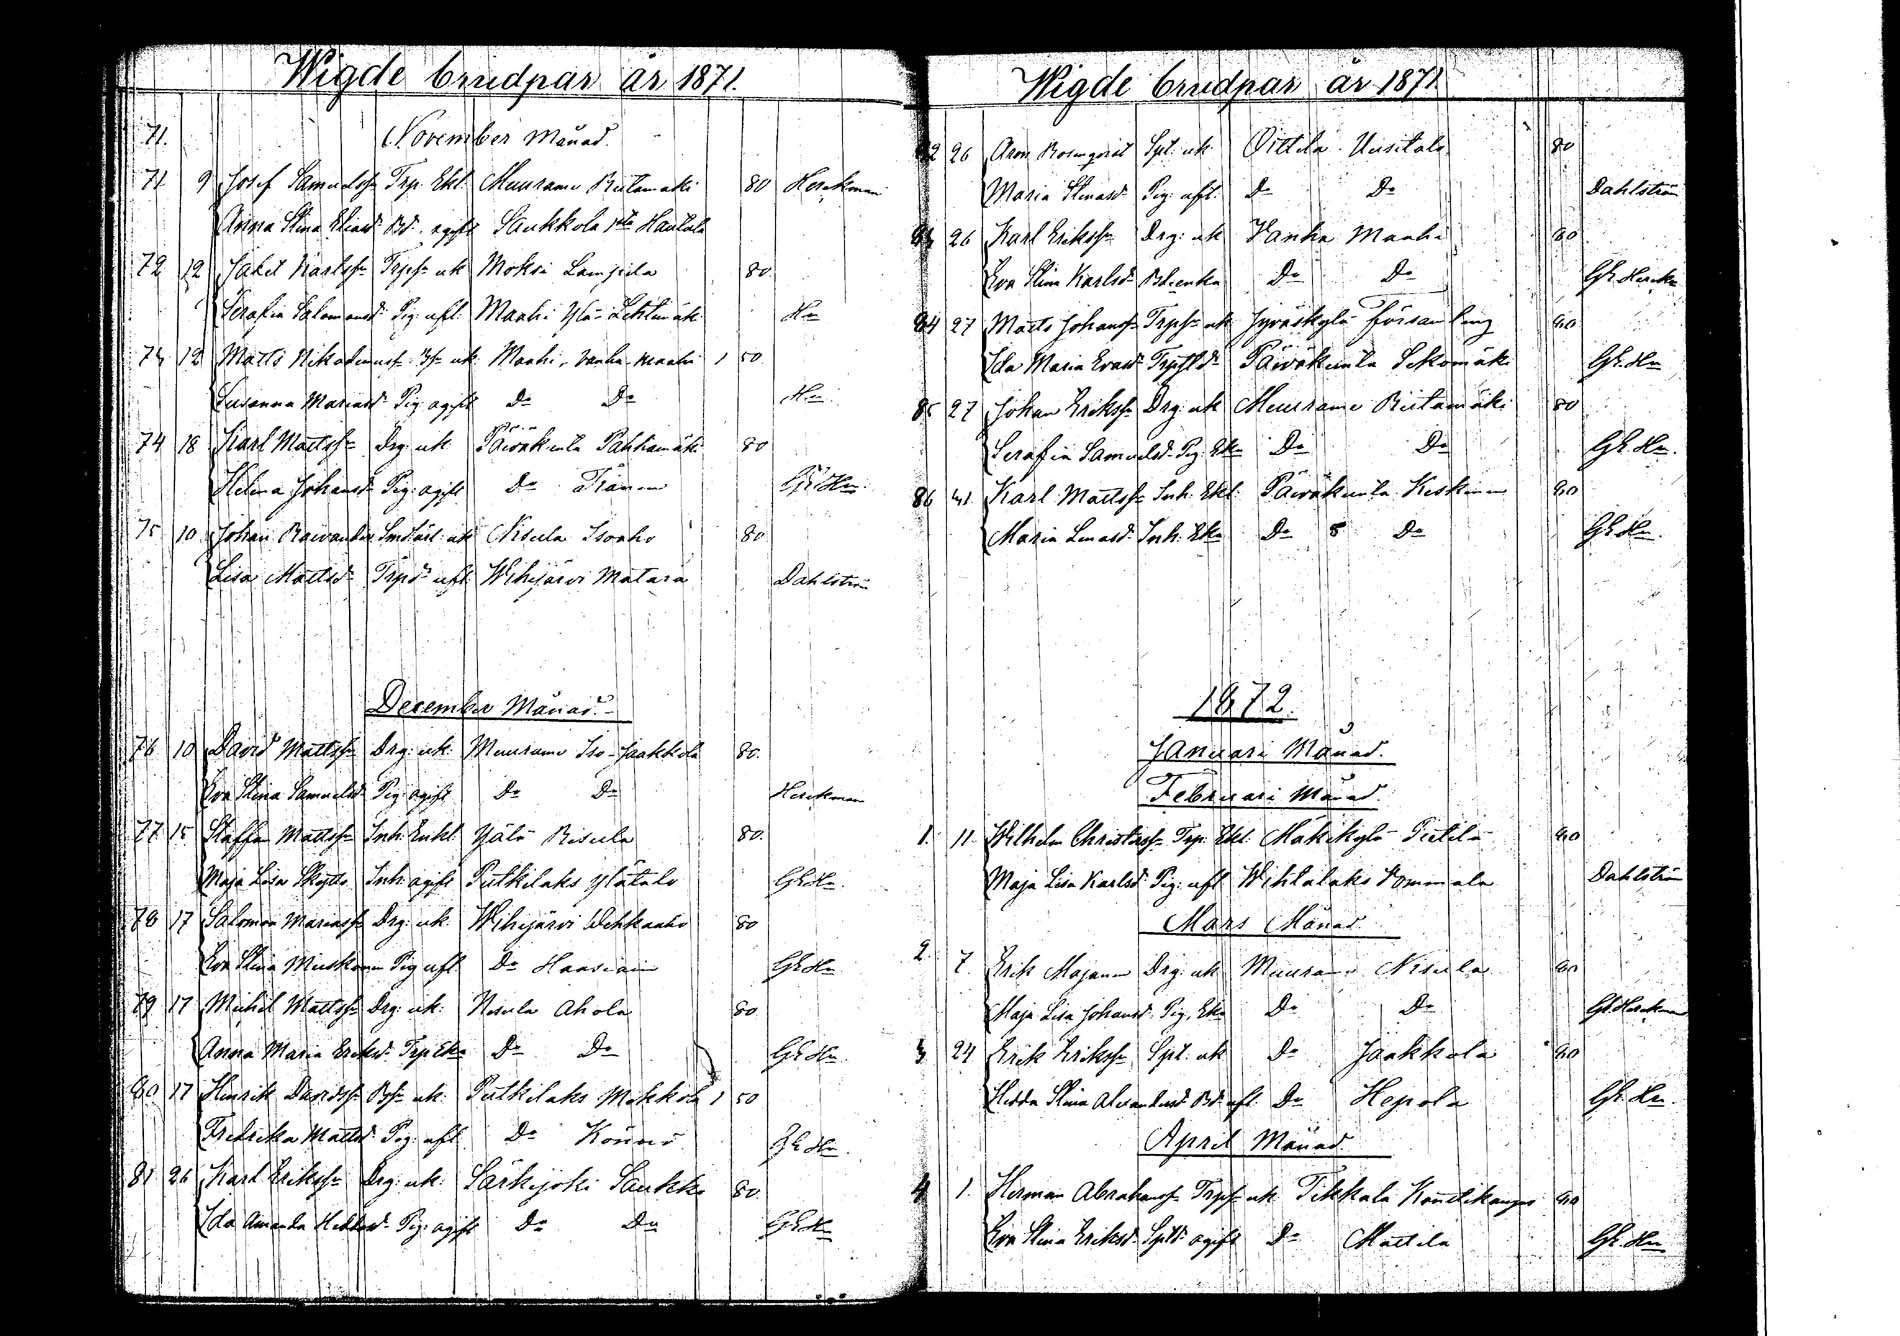 Wigde brudpar år 1871.
71. November Månad.
71 9 Josef Samuelss: Trp. Ekl. Muurame Riitamäki 80 Herckman
Anna Stina Eliasd: Bd. ogift Saukkola Hautala
72 12 Jakel Karlss: Trps: uk Moksi Lampila 80
Serafia Salomonsd: Pig: ofl. Maahi Ylä-Lehtimäki Hn
73 12 Matts Nikodemuss: Bs: uk. Maahi, Vanha-Maahi 1 50
Susanna Mariasd: Pig ogift Do Do Hn
74 18 Karl Mattss: Drg: uk. Päiväkunta Pahkamäki 80
Helena Johansd: Pig: ogift Do Tränin GE Hn.
75 10 Johan Raivander uk Nisula Isoaho 80
Lisa Mattsd: Trpd: ofl. Wihijärvi Matara Dahlström
December Månad.
76 10 David Mattss: Drg: uk. Muurame Iso-Jaakkola 80.
Eva Stina Samuelsd: Pig: ogift Do Do Herckman
77 15 Staffan Mattss: Inh. Enkl. Ylä Risula 80.
Maja Lisa Inh: ogift Putkilaks Ylätalo GE Hn.
78 17 Salomon Mariass: Drg: uk. Wihijärvi Wehkaaho 80
Eva Stina Pig ofl. Do GE Hn
79 17 Michel Mattss: Drg: uk: Nisula Ahola 80
Anna Maria Eriksd: Trp Eka Do Do GE Hn.
80 17 Henrik Davidss: Bs: uk. Putkilaks Mokkola 1 50
Fredrika Mattsd: Pig: ofl. Do Könnö GE Hn.
81 26 Karl Erikss: Drg: uk. Särkijoki Saukko 80
Ida Amanda Heddasd: Pig: ogift Do Do GE Hn
Wigde brudpar år 1871
82 26 Aron Rosenqvist Spt. uk. Oittila Uusitalo 80
Maria Stinasd: Pig: ofl. Do Do Dahlström
83 26 Karl Erikss: Drg: uk Vanha Maahi 80
Eva Stina Karlsd: Bdeenka Do Do GE Herckn
84 27 Matts Johanss: Trps: uk Jyväskylä församling 80
Ida Maria Evasd: Päiväkunta Sekomäki GE. Hn
85 27 Johan Erikss: Drg: uk Muurame Riitamäki 80
Serafia Samuelsd: Pig: Eka Do Do GE. Hn.
86 31 Karl Mattss: Inh. Ekl: Päiväkunta Keskinen 80
Maria Lenasd: Inh: Eka Do Do GE Hn.
1872.
Januari Månad.
Februari Månad.
1. 11. Wilhelm Christerss: Trp: Ekl. Mäkikylä Piitilä 80
Maja Lisa Karlsd: Pig: ofl. Wihtalaks Pommela Dahlström
Mars Månad.
2. 7. Erik Majanen Drg: uk Muurame Nisula 80
Maja Lisa Johansd: Pig. Eka Do Do GE Herckman
3 24 Erik Erikss: Spt. uk Do Jaakkola 80
Hedda Stina Alexandersd: Bd: ofl Do Hepola GE. Hn.
April Månad.
4 1. Herman Abrahamss: Trps: uk Tikkala Konttikangas 80
Eva Stina Eriksd: Sptd: ogift Do Mattila GE. Hn